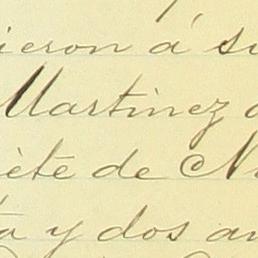 ieron á su
Martinez
iete de N
ta y dos añ